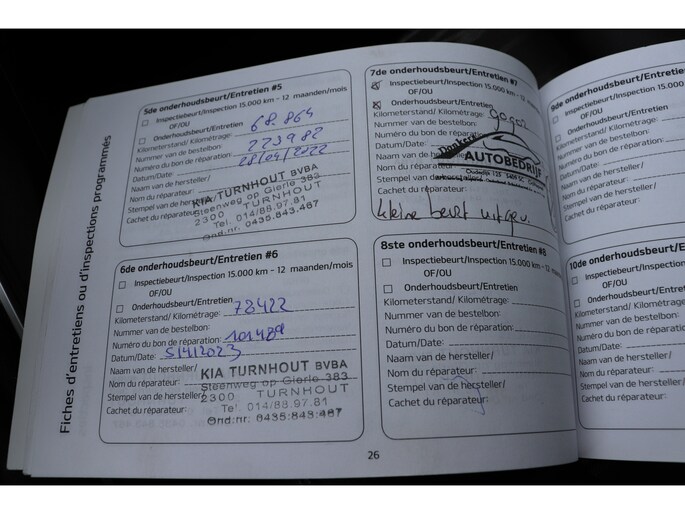 Fiches d'entretiens ou d'inspections programmés
5de onderhoudsbeurt/Entretien #5
Inspectiebeurt/Inspection 15.000 km – 12 maanden/mois
OF/OU
Onderhoudsbeurt/Entretien
Kilometerstand/ Kilométrage: 68.864
Nummer van de bestelbon:
Numéro du bon de réparation: 223982
Datum/Date: 28/04/2022
Naam van de hersteller/
Nom du réparateur:
Stempel van de hersteller/
Cachet du réparateur:
KIA TURNHOUT BVBA
Steenweg op Gierle 383
2300 TURNHOUT
Tel. 014/88.97.81
Ond.nr. 0435.843.467
6de onderhoudsbeurt/Entretien #6
Inspectiebeurt/Inspection 15.000 km – 12 maanden/mois
OF/OU
Onderhoudsbeurt/Entretien
Kilometerstand/ Kilométrage: 78422
Nummer van de bestelbon:
Numéro du bon de réparation: 101489
Datum/Date: 5/4/2023
Naam van de hersteller/
Nom du réparateur:
Stempel van de hersteller/
Cachet du réparateur:
KIA TURNHOUT BVBA
Steenweg op Gierle 383
2300 TURNHOUT
Tel. 014/88.97.81
Ond.nr. 0435.843.467
7de onderhoudsbeurt/Entretien #7
Inspectiebeurt/Inspection 15.000 km – 12 maanden/mois
OF/OU
Onderhoudsbeurt/Entretien
Kilometerstand/ Kilométrage:
Nummer van de bestelbon:
Numéro du bon de réparation:
Datum/Date:
Naam van de
Nom du réparateur:
Stempel van de
Cachet du réparateur:
Donkers
AUTOBEDRIJF
kleine beurt uitgev.
8ste onderhoudsbeurt/Entretien #8
Inspectiebeurt/Inspection 15.000 km – 12 maanden/mois
OF/OU
Onderhoudsbeurt/Entretien
Kilometerstand/ Kilométrage:
Nummer van de bestelbon:
Numéro du bon de réparation:
Datum/Date:
Naam van de hersteller/
Nom du réparateur:
Stempel van de hersteller/
Cachet du réparateur:
26
9de onderhoudsbeurt
Inspectiebeurt/
OF/OU
Onderhoudsbeurt
Kilometerstand/
Nummer van de
Numéro du bon
Datum/Date:
Naam van de
Nom du répar
Stempel van
Cachet du
10de onderh
Inspec
OF
Onder
Kilomete
Numme
Numéro
Datum
Naam
Nom
Stem
Cach